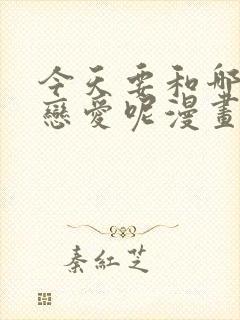 今天要和那
戀愛呢漫畫
秦紅芝